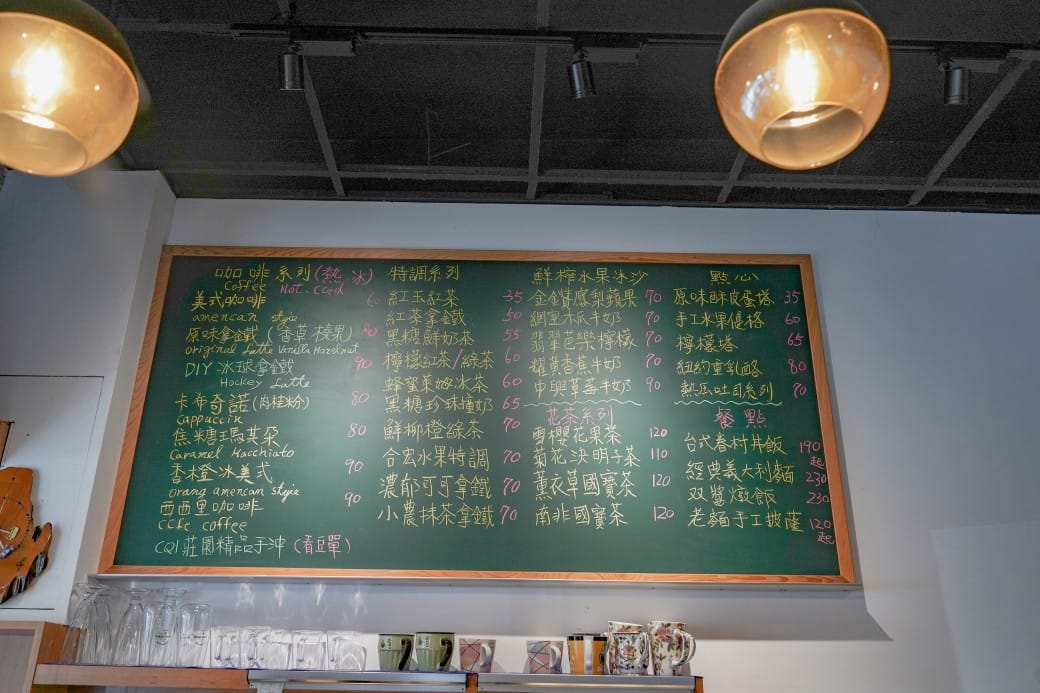 咖啡系列(熱 冰)
Coffee Hot. Cced
美式咖啡 60
amencan style
原味拿鐵(香草榛果) 80
original Latte Vanilla Hazelnut
DIY冰球拿鐵 90
Hockey Latte
卡布奇諾(肉桂粉) 80
Cappuccin
焦糖瑪其朵 80
Caramel Macchiato
香橙冰美式 90
orang amencan style
西西里咖啡 90
CCke coffee
CQI莊園精品手沖(看豆單)
特調系列
紅玉紅茶 35
紅茶拿鐵 50
黑糖鮮奶茶 55
檸檬紅茶/綠茶 60
蜂蜜萊姆冰茶 60
黑糖珍珠撞奶 65
鮮柳橙綠茶 70
合宏水果特調 70
濃郁可可拿鐵 70
小農抹茶拿鐵 70
鮮榨水果冰沙
金鑽鳳梨蘋果 70
網室木瓜牛奶 70
翡翠芭樂檸檬 70
蕉黃香蕉牛奶 70
中興草莓牛奶 90
花茶系列
雪櫻花果茶 120
菊花決明子茶 110
薰衣草國寶茶 120
南非國寶茶 120
點心
原味酥皮蛋塔 35
手工水果優格 60
檸檬塔 65
紐約重乳酪 80
熱瓜吐司系列 70
餐點
台式眷村丼飯 190起
經典義大利麵 230
双醬燉飯 230
老麵手工披薩 120起